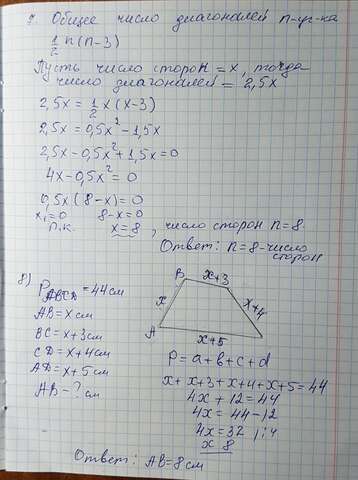 7 Общее число диагоналей n-уг-ка
1/2 n(n-3)
Пусть число сторон = x, тогда
число диагоналей = 2,5x
2,5x = 1/2 x(x-3)
2,5x = 0,5x² - 1,5x
2,5x - 0,5x² + 1,5x = 0
4x - 0,5x² = 0
0,5x(8-x) = 0
x₁=0 8-x=0
п.к. x=8, число сторон n=8
Ответ: n=8 - число
сторон
8) P ABCD = 44 см
AB = x см
BC = x+3 см
CD = x+4 см
AD = x+5 см
AB - ? см
B x+3
x x+4
A x+5
P = a+b+c+d
x+x+3+x+4+x+5=44
4x+12=44
4x=44-12
4x=32 |:4
x 8
Ответ: AB=8 см